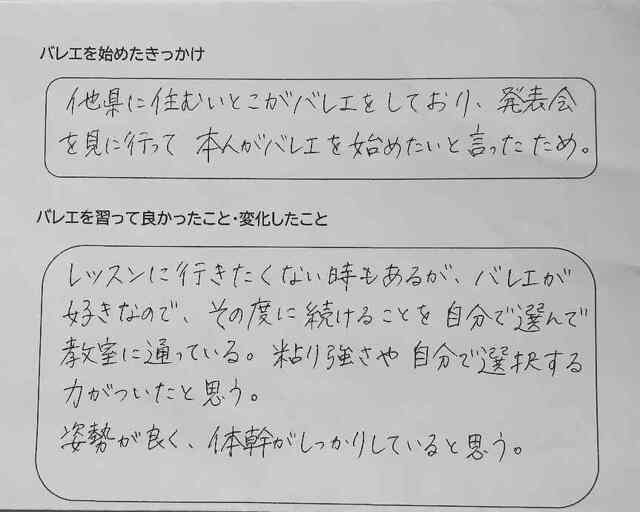 バレエを始めたきっかけ
他県に住むいとこがバレエをしており、発表会
を見に行って 本人がバレエを始めたいと言ったため。
バレエを習って良かったこと・変化したこと
レッスンに行きたくない時もあるが、バレエが
好きなので、その度に続けることを自分で選んで
教室に通っている。粘り強さや自分で選択する
力がついたと思う。
姿勢が良く、体幹がしっかりしていると思う。